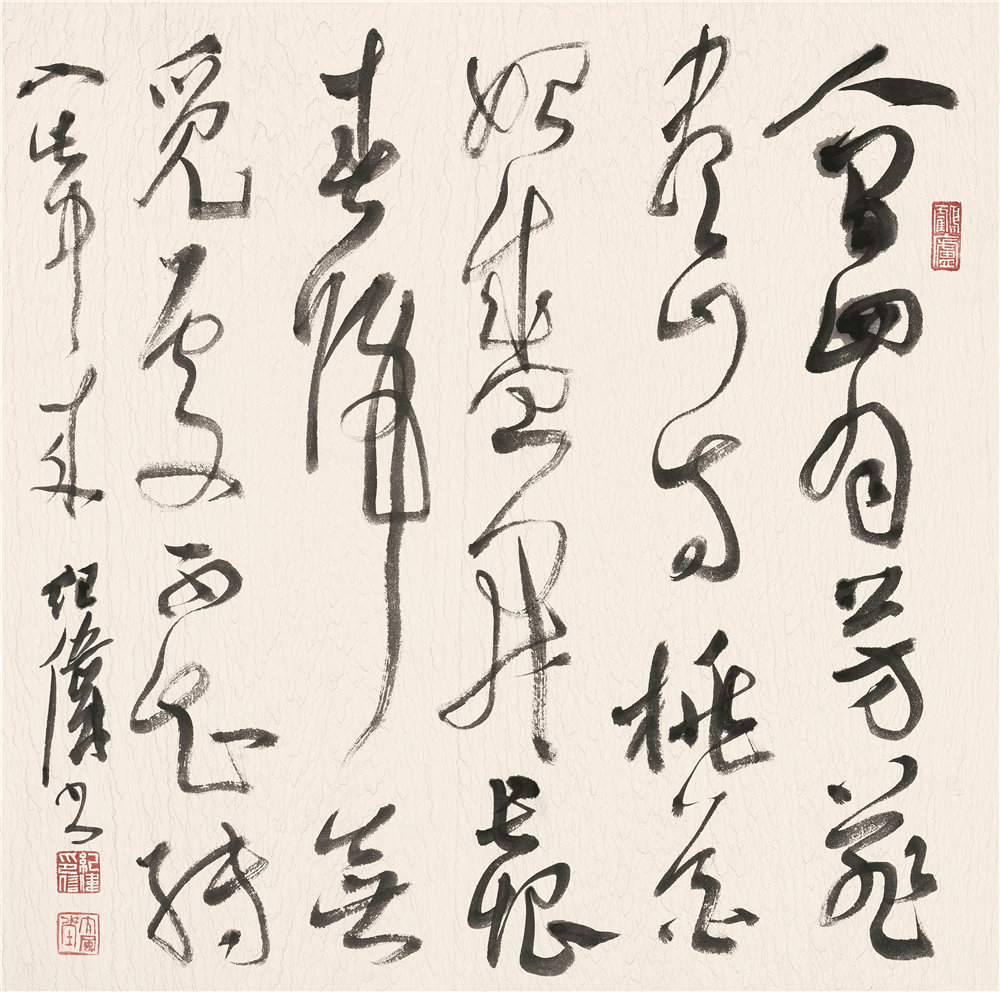 人間四月芳菲
盡山寺桃花
始盛開長恨
春歸無
覓處不知轉
入此中来 紀偉書
紀偉印信